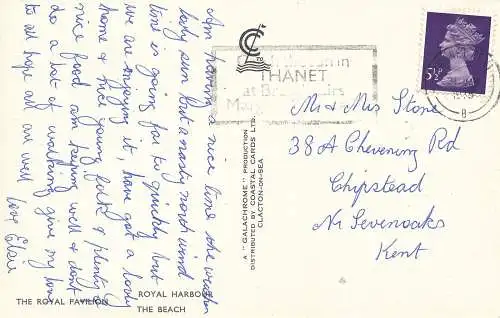 Am having a nice time the weather
lovely sun but a nasty north wind
time is going far to quickly but
we are enjoying it, have got a lovely
home & nice young folk & plenty of
nice food am keeping well & dont
do a lot of walking give my love
to all hope all are well
love Elsie
THE ROYAL PAVILION
ROYAL HARBOUR
THE BEACH
A "GALACHROME" PRODUCTION
DISTRIBUTED BY COASTAL CARDS LTD.
CLACTON-ON-SEA
in
THANET
at Broadstairs
5½P
8
Mr & Mrs Stone
38A Chevening Rd
Chipstead
Nr Sevenoaks
Kent